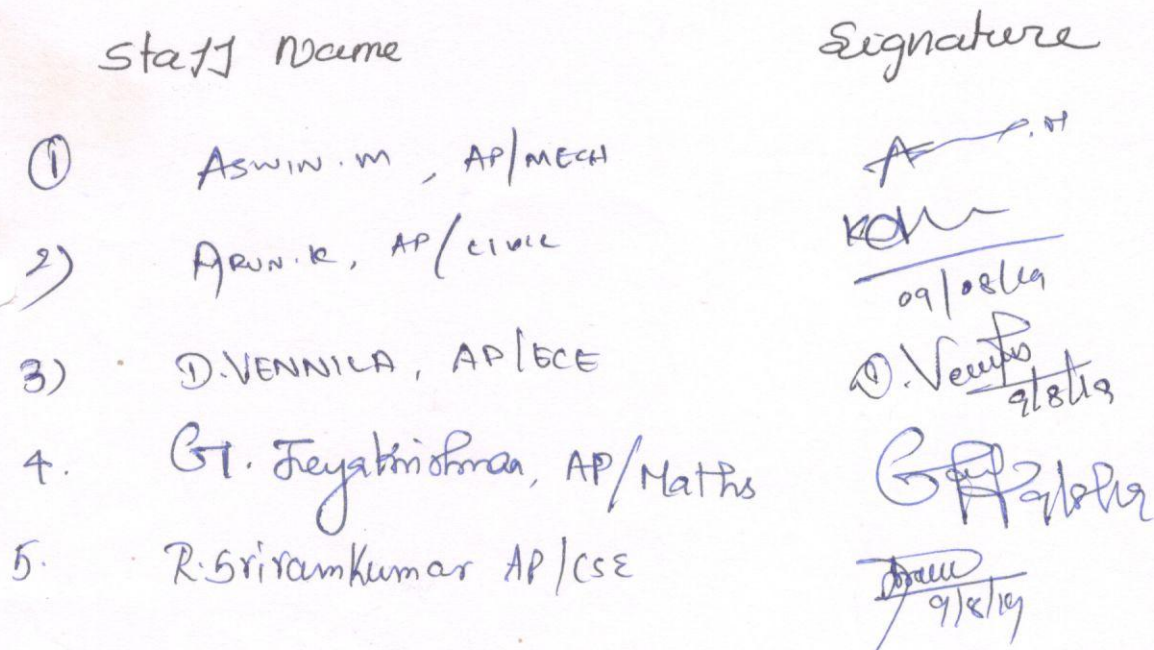 Staff Name Signature
① ASWIN.M, AP/MECH
2) ARUN.K, AP/CIVIL
09/08/19
3) D.VENNILA, AP/ECE D.Vennila
9/8/19
4. G. Jeyakrishnan, AP/Maths 9/8/19
5. R.Sriramkumar AP/CSE
9/8/19